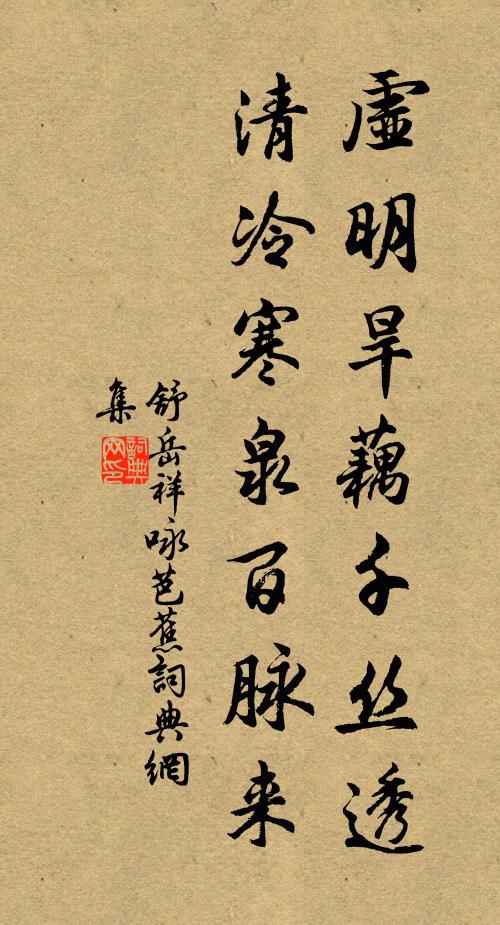 虛明旱藕千丝透
清冷寒泉百脉来
舒岳祥咏芭蕉詞典網
集
詞典
网印